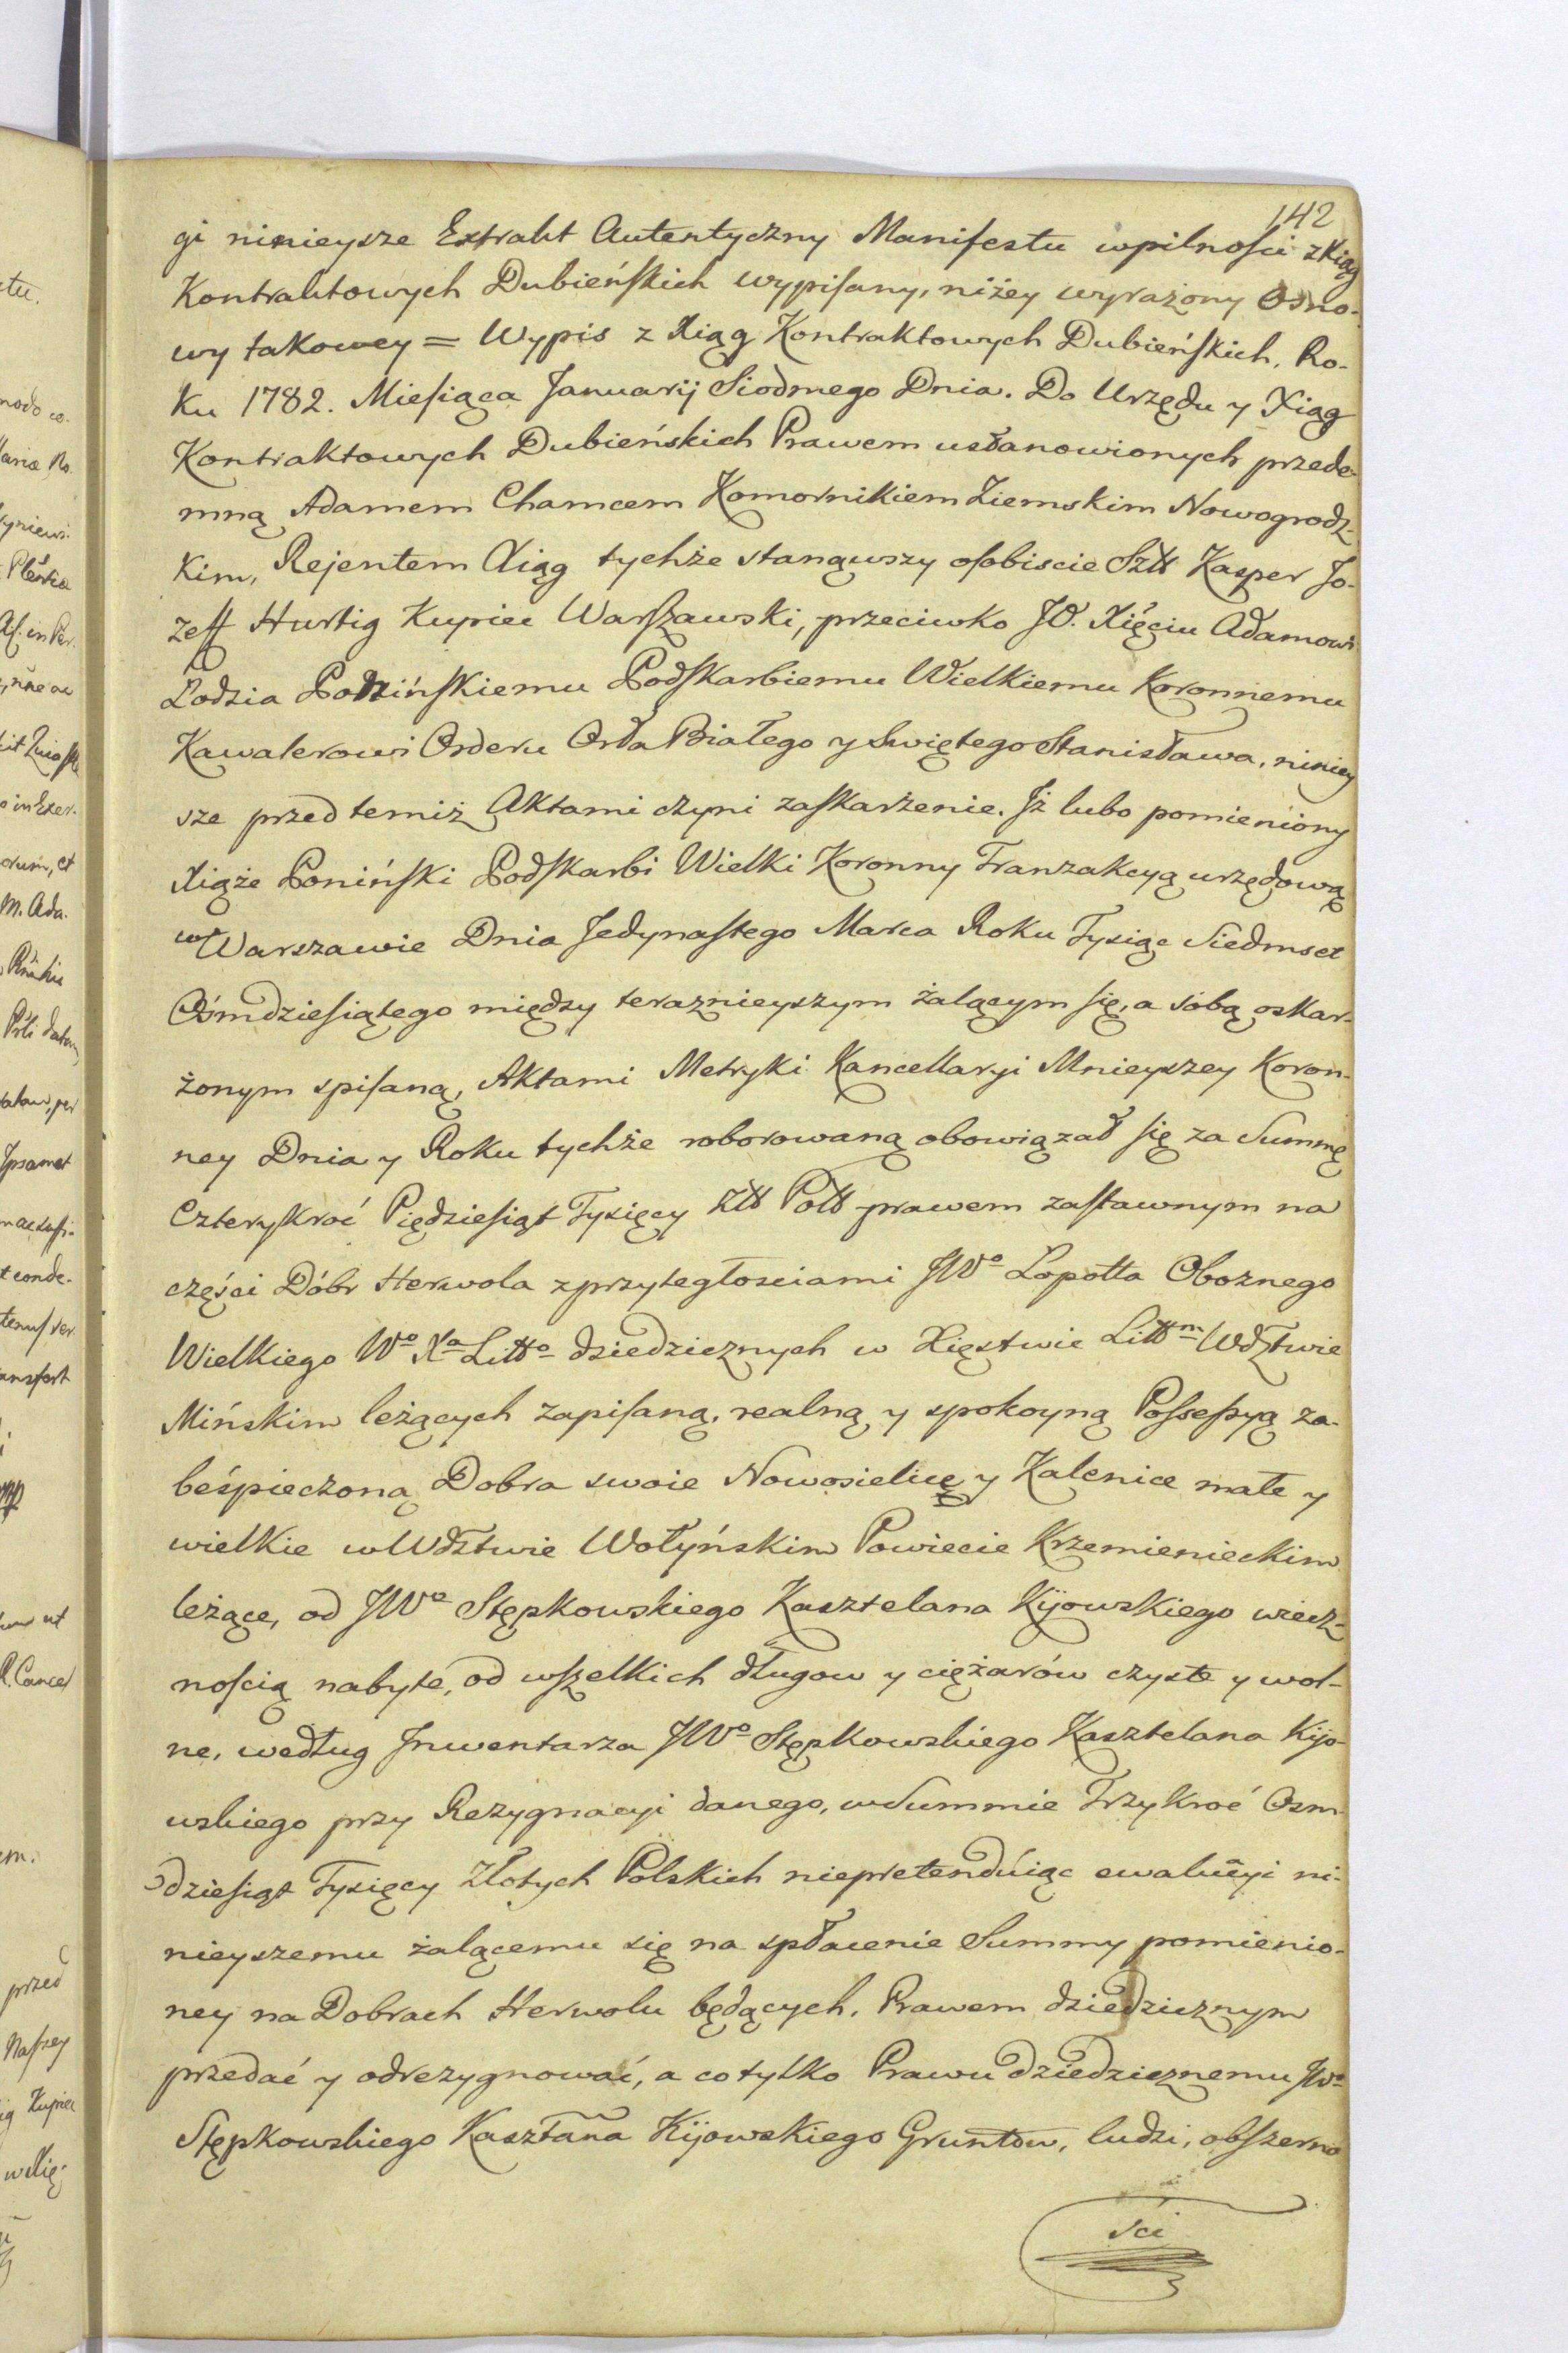 142
gi ninieysze Extrakt Autentyczny Manifestu wpilności z Xiąg
Kontraktowych Dubieńskich wypisany, niżey wyrażony Osno-
wy takowey = Wypis z Xiąg Kontraktowych Dubieńskich, Ro-
ku 1782. Miesiąca Januarij Siodmego Dnia. Do Urzędu y Xiąg
Kontraktowych Dubieńskich Prawem ustanowionych przede-
mną Adamem Chamcem Komornikiem Ziemskim Nowogrodz-
kim, Rejentem Xiąg tychże stanąwszy osobiscie Sztt Kasper Jo-
zeff Hurtig Kupiec Warszawski, przeciwko JO. Xięciu Adamowi
Lodzia Ponińskiemu Podskarbiemu Wielkiemu Koronnemu
Kawalerowi Orderu Orła Białego y Swiętego Stanisława, niniey
sze przed temiż Aktami czyni zaskarżenie. Jż lubo pomieniony
Xiąże Poniński Podskarbi Wielki Koronny Tranzakcyą urzędową
w Warszawie Dnia Jedynastego Marca Roku Tysiąc Siedmset
Ośmdziesiątego między teraznieyszym żalącym się, a sobą oskar-
żonym spisaną, Aktami Metryki Kancellaryi Mnieyszey Koron-
ney Dnia y Roku tychże roborowaną obowiązał się za Summę
Czterykroć Pięćdziesiąt Tysięcy Ztt Poltt prawem zastawnym na
części Dóbr Herwola z przyległosciami JWo Łopotta Obożnego
Wielkiego Wo Xa Litto dziedzicznych w Xięstwie Littm Wdztwie
Mińskim leżących zapisaną, realną y spokoyną Possessyą za-
beśpieczoną Dobra swoie Nowosielicę y Kalenice małe y
wielkie w Wdztwie Wołyńskim Powiecie Krzemienieckim
leżące, od JWo Stępkowskiego Kasztelana Kijowskiego wiecz-
nością nabyte, od wszelkich długow y ciężarów czyste y wol-
ne, według Jnwentarza JWo Stępkowskiego Kasztelana Kijo-
wskiego przy Rezygnacyi danego, w Summie Trzykroć Osm-
dziesiąt Tysięcy Złotych Polskich niepretenduiąc ewaluc̃yi ni-
nieyszemu żalącemu się na spłacenie Summy pomienio-
ney na Dobrach Herwolu będących, Prawem dziedzicznym
przedać y odrezygnować, a co tylko Prawu dziedzicznemu JWo
Stępkowskiego Kasztãna Kijowskiego Gruntow, ludzi, obszerno
sci